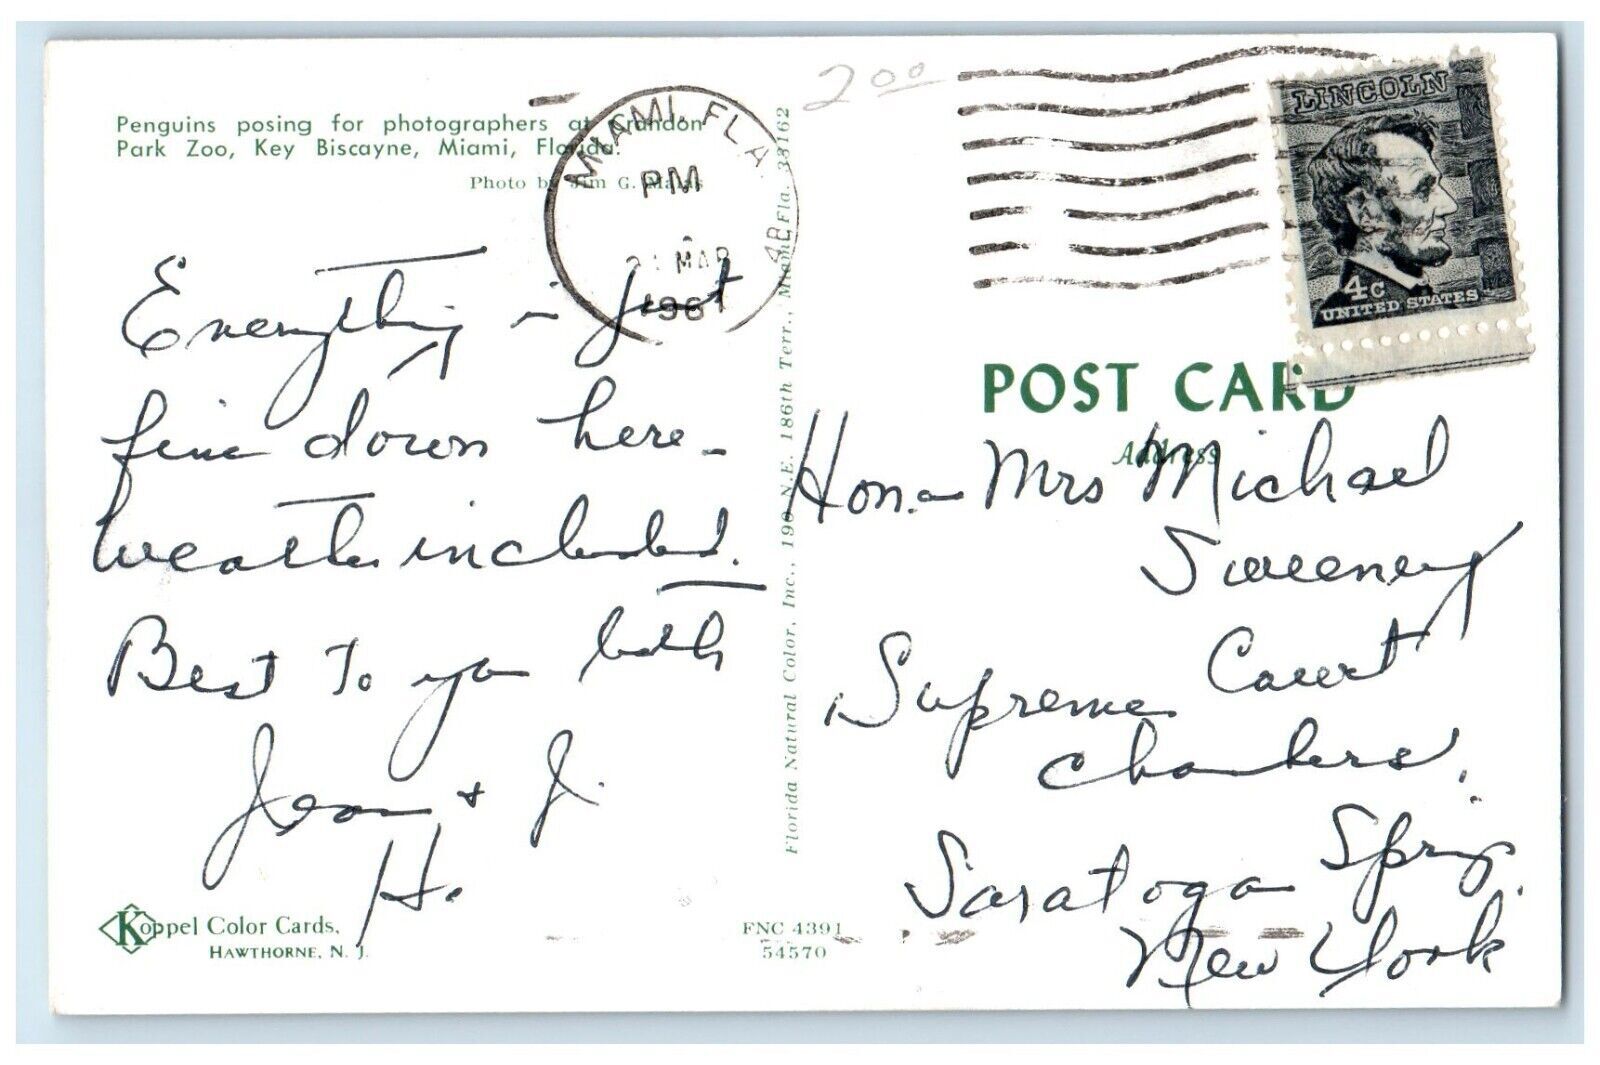 Penguins posing for photographers at Crandon
Park Zoo, Key Biscayne, Miami, Florida.
Photo by Jim G.
Everything is just
fine down here -
weather included.
Best to you both
Jean + J.
H.
Koppel Color Cards,
HAWTHORNE, N. J.
FNC 4391
54570
Florida Natural Color, Inc., 190 N.E. 186th Terr., Miami, Fla. 33162
MIAMI, FLA.
PM
MAR
196
2 00
LINCOLN
4c
UNITED STATES
POST CARD
Address
Hon. - Mrs Michael
Sweeney
Supreme Court
Chambers,
Saratoga Springs,
New York